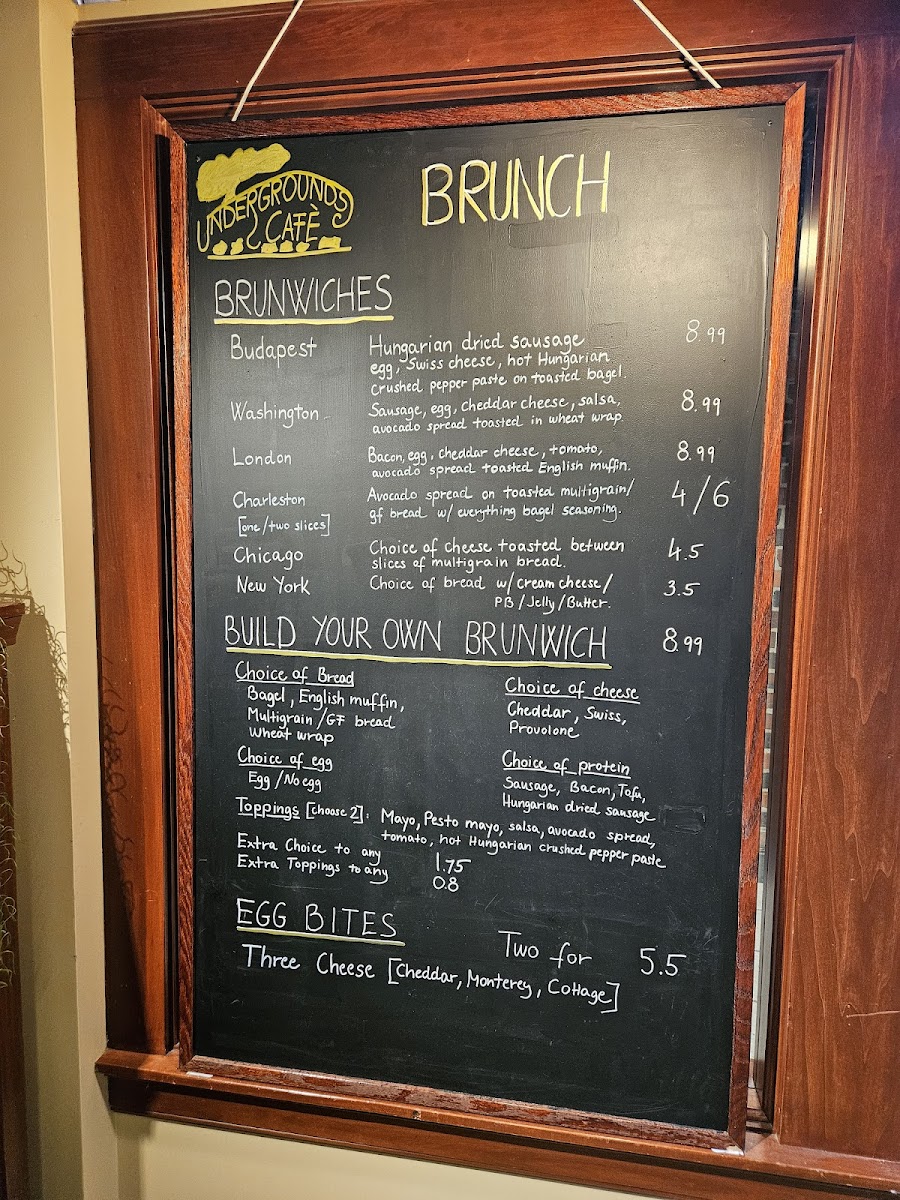 UNDERGROUNDS
CAFÈ
BRUNCH
BRUNWICHES
Budapest Hungarian dried sausage 8.99
egg, Swiss cheese, hot Hungarian
crushed pepper paste on toasted bagel.
Washington Sausage, egg, cheddar cheese, salsa, 8.99
avocado spread toasted in wheat wrap
London Bacon, egg, cheddar cheese, tomato, 8.99
avocado spread toasted English muffin.
Charleston Avocado spread on toasted multigrain/ 4/6
[one/two slices] gf bread w/ everything bagel seasoning.
Chicago Choice of cheese toasted between 4.5
slices of multigrain bread.
New York Choice of bread w/cream cheese/ 3.5
PB/Jelly/Butter.
BUILD YOUR OWN BRUNWICH 8.99
Choice of Bread
Bagel, English muffin,
Multigrain/GF bread
Wheat wrap
Choice of cheese
Cheddar, Swiss,
Provolone
Choice of egg
Egg/No egg
Choice of protein
Sausage, Bacon, Tofu,
Hungarian dried sausage
Toppings [choose 2]: Mayo, Pesto mayo, salsa, avocado spread,
tomato, hot Hungarian crushed pepper paste
Extra Choice to any 1.75
Extra Toppings to any 0.8
EGG BITES
Two for 5.5
Three Cheese [Cheddar, Monterey, Cottage]